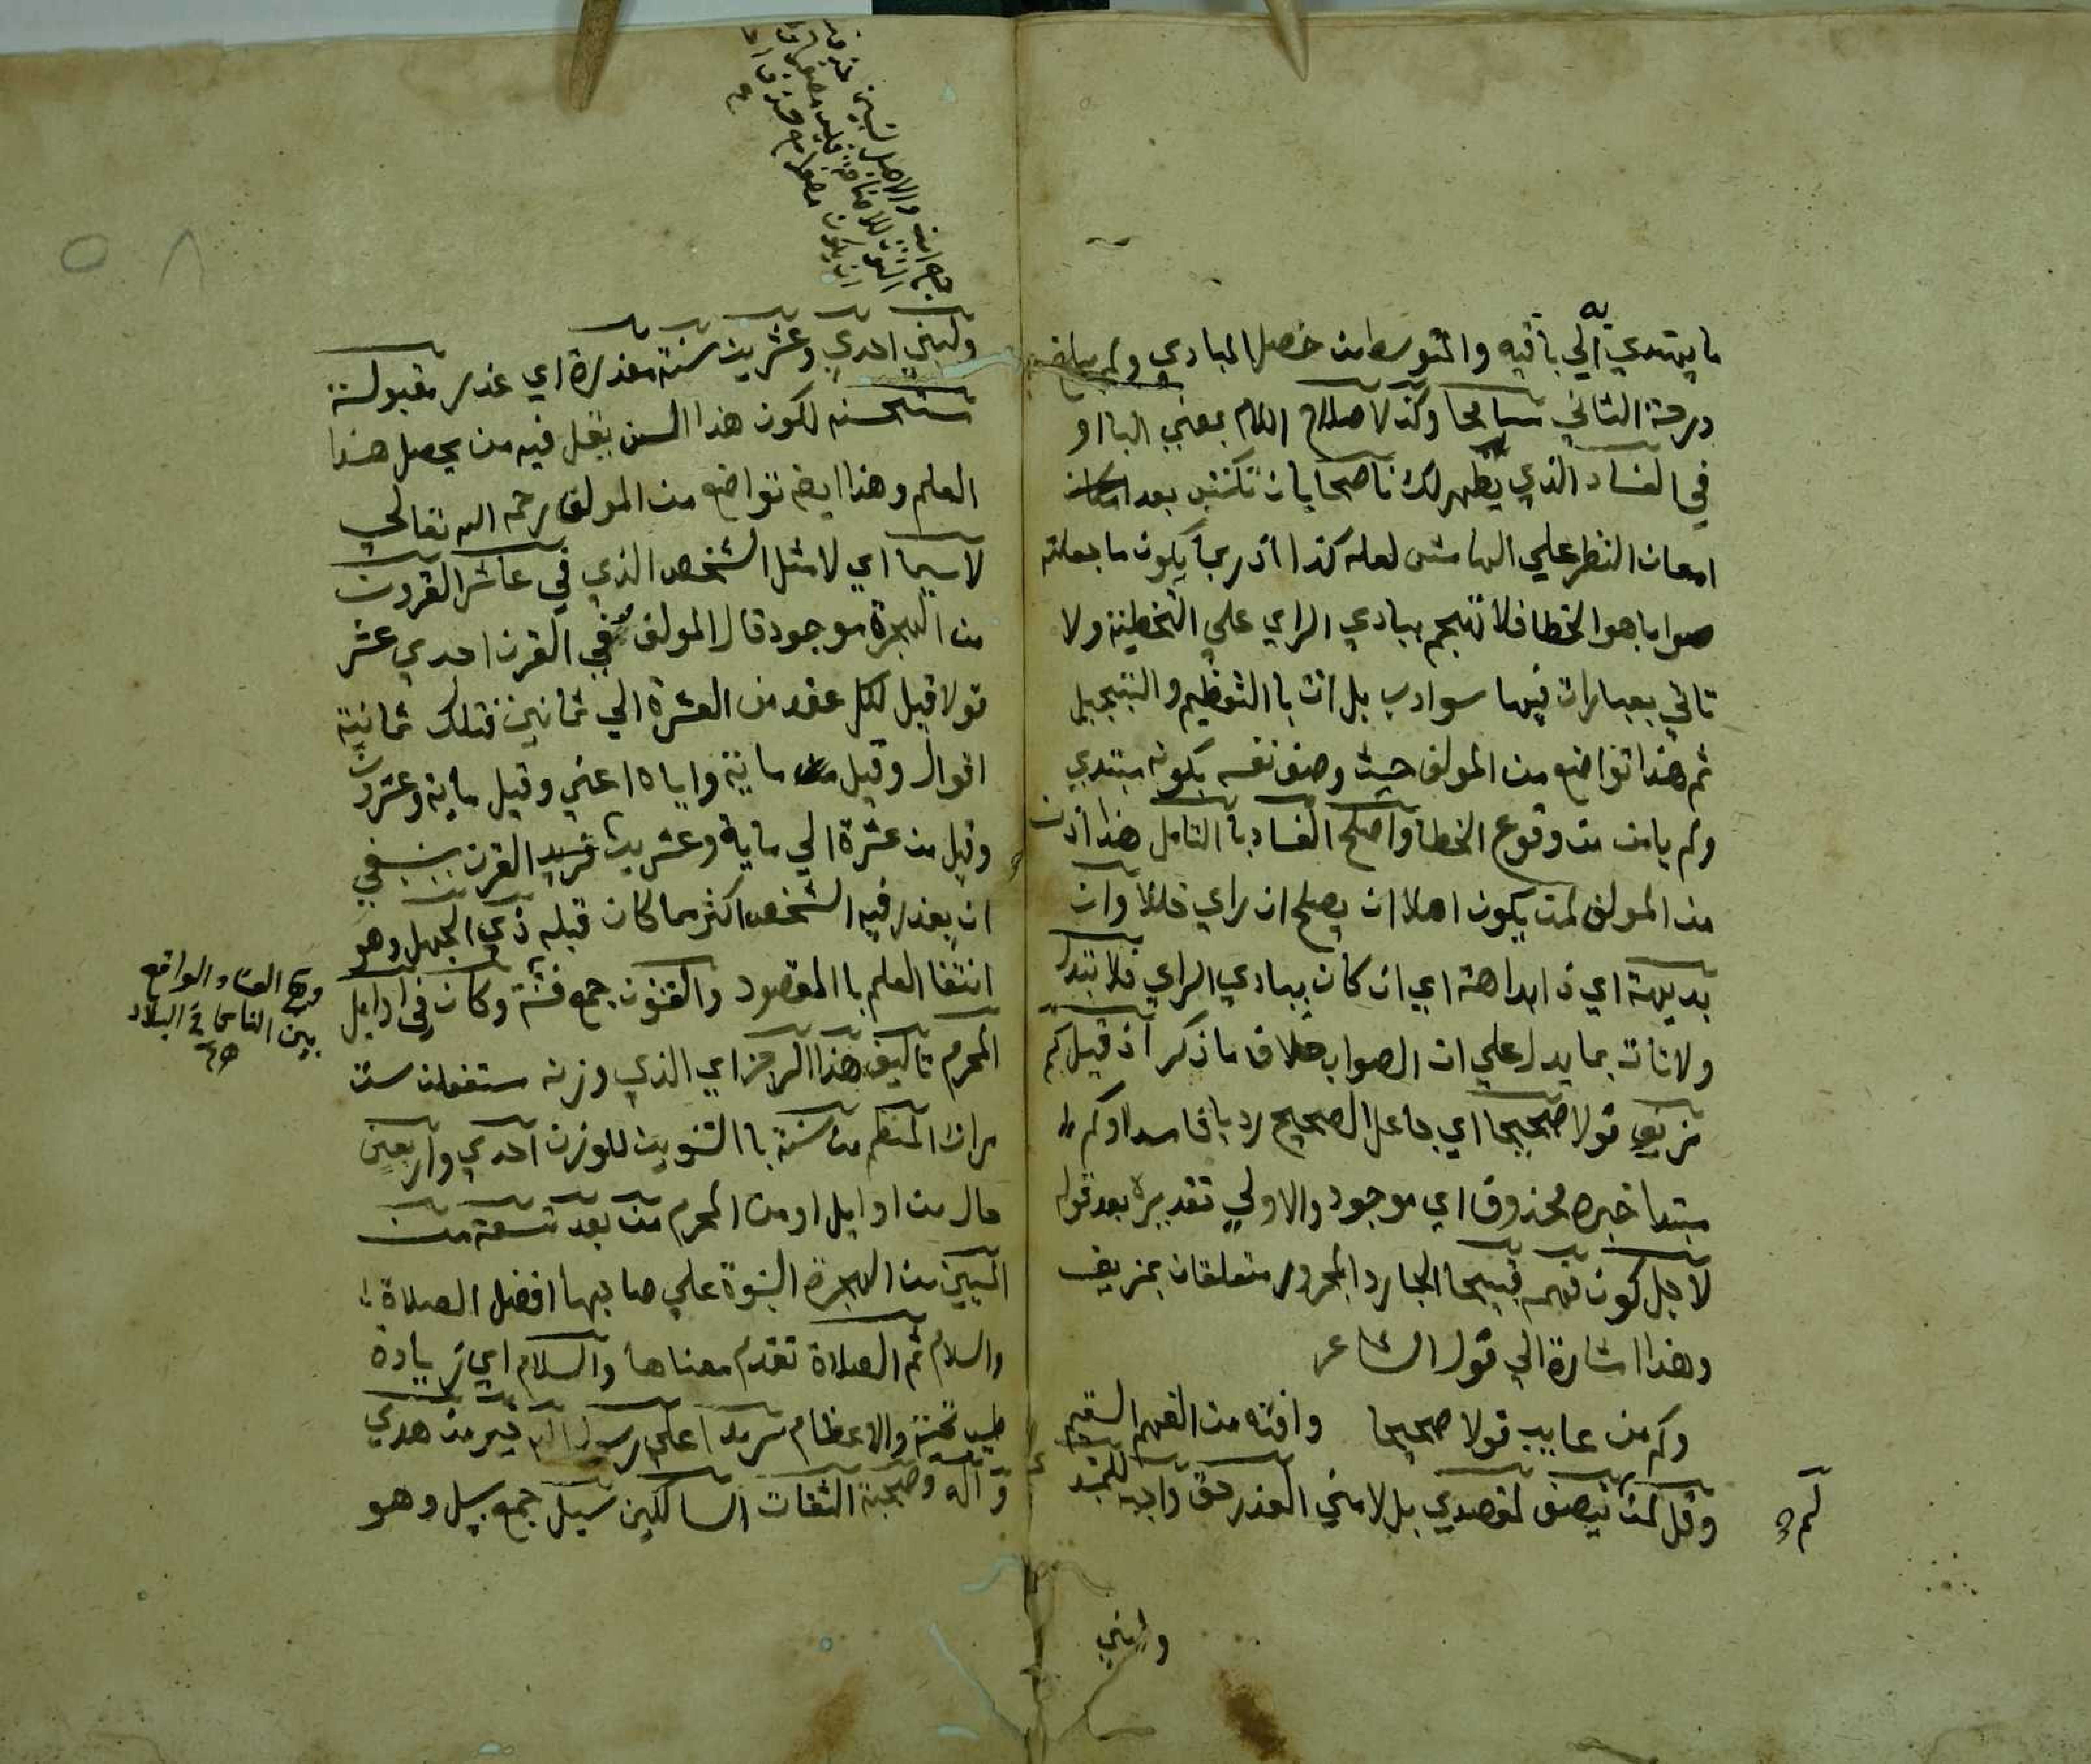 ما يهتدي به الي باقيه والمتوسط من حصل المبادي ولم يبلغ
درجة الثاني مسامحا وكن لاصلاح اللام بمعني الباا و
في الفساد الذي يظهر لك ناصحا بان تكتب بعد
امعان النظر علي الهامش لعله كذا اذ ربما يكون ما جعلته
صوابا هو الخطا فلا تهجم ببادي الراي علي التخطيئة ولا
تاتي بعبارات فيها سوادب بل ات باالتعظيم والتبجيل
ثم هذا تواضع من المولف حيث وصف نفسه بكونه مبتدي
ولم يامن من وقوع الخطا واصلح الفساد باالتامل هذا اذن
من المولف لمن يكون اهلا ان يصلح ان راي خللا وان
بديهة اي ذا بداهة اي ان كان ببادي الراي فلا تبدل
ولا تات بما يدل علي ان الصواب خلاف ما ذكر اذ قيل كم
مزيف قولا صحيحا اي جاعل الصحيح رديا فاسدا وكم
مبتدا خبره محذوف اي موجود والاولي تقديره بعد قوله
لاجل كون فهمه قبيحا الجار والمجرور متعلقان بمزيف
وهذا اشارة الي قول الشاعر
وكم من عايب قولا صحيحا وافته من الفهم السقيم
وقل لمن لم ينتصف لمقصدي بل لامني العذر حق واجب للمبتدي
ولبني
ولبني احدي وعشرين سنة معذرة اي عذر مقبولة
مستحسنه لكون هذا السن يقل فيه من يحصل هذا
العلم وهذا ايضا تواضع من المولف رحمه الله تعالي
لاسيما اي لا مثل الشخص الذي في عاشر القرون
من الهجرة موجود قال المولف في القرن احدي عشر
قولا قيل لكل عقد من العشرة الي ثمانين فتلك ثمانية
اقوال وقيل ماية واياه اعني وقيل ماية وعشرون
وقيل من عشرة الي ماية وعشرين القرن ينبغي
ان يعذر فيه الشخص اكثر مما كان قبله ذي الجهل وهو
انتفا العلم باالمقصود والفتون جمع فتنة وكان في اوايل
المحرم تاليف هذا الرجز اي الذي وزنه مستفعلن ست
مرات المنظم من سنة باالتنوين للوزن احدي واربعين
حال من اوايل او من المحرم من بعد تسعة من
المئين من الهجرة النبوة علي صاحبها افضل الصلاة
والسلام ثم الصلاة تقدم معناها والسلام اي زيادة
طيب تحية والاعظام سرمدا علي رسول الله خير من هدي
واله وصحبه الثقات السالكين سبل جمع سبيل وهو
وهي الفساد الواقع
بين الناس في البلاد